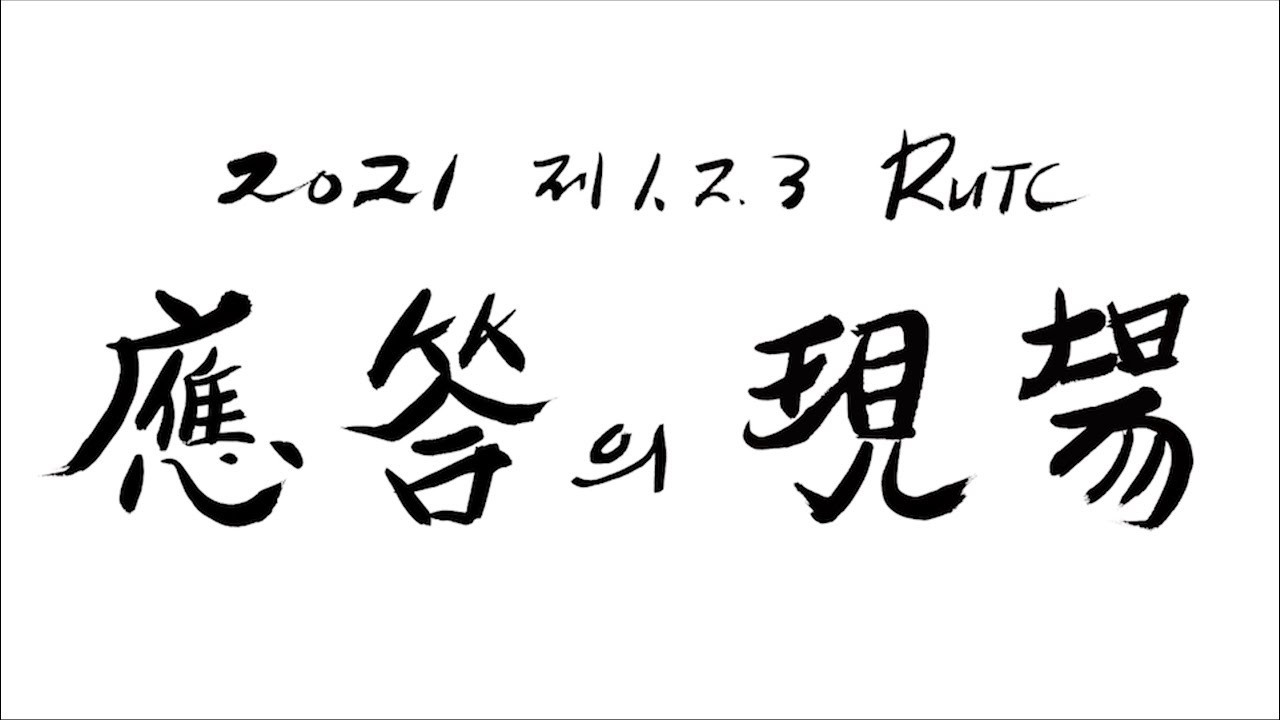 2021 제1.2.3 RUTC
應答의 現場